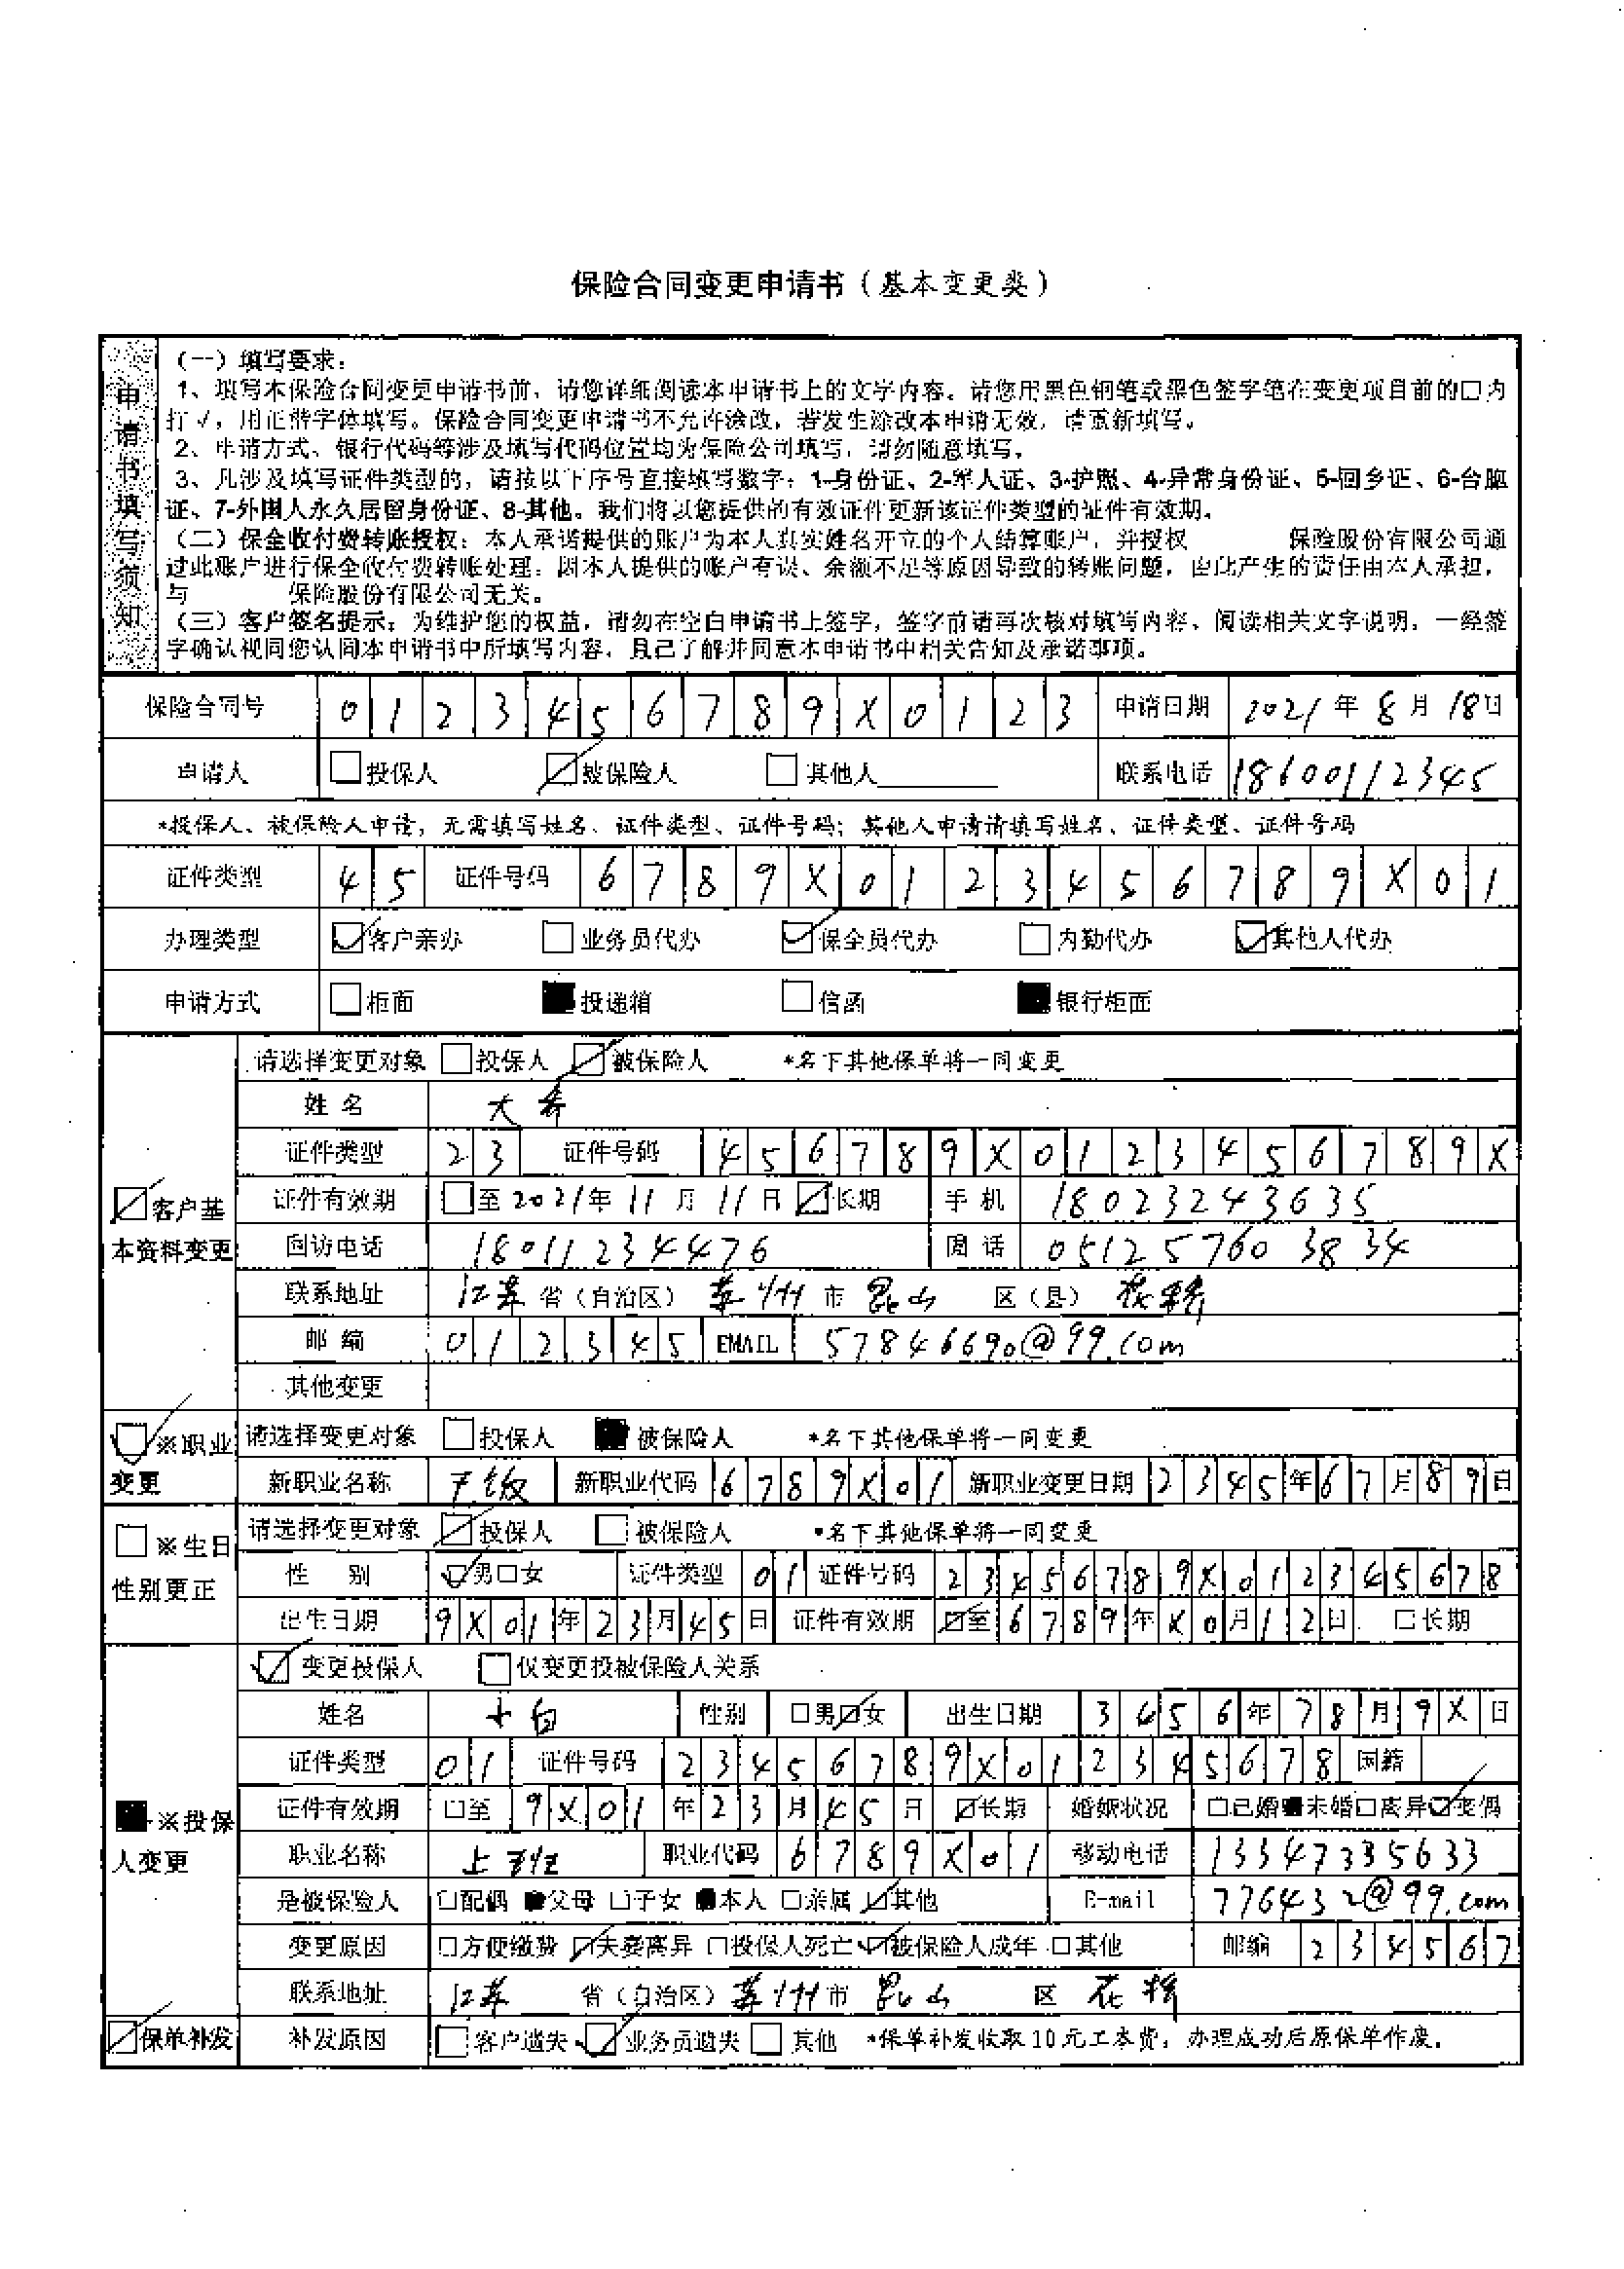 保险合同变更申请书（基本变更类）
申请书填写须知
（一）填写要求：
1、填写本保险合同变更申请书前，请您详细阅读本申请书上的文字内容。请您用黑色钢笔或黑色签字笔在变更项目前的口内
打√，用正楷字体填写。保险合同变更申请书不允许涂改，若发生涂改本申请无效，请重新填写。
2、申请方式、银行代码等涉及填写代码位置均为保险公司填写，请勿随意填写。
3、凡涉及填写证件类型的，请按以下序号直接填写数字：1-身份证、2-军人证、3-护照、4-异常身份证、5-回乡证、6-台胞
证、7-外国人永久居留身份证、8-其他。我们将以您提供的有效证件更新该证件类型的证件有效期。
（二）保全收付费转账授权：本人承诺提供的账户为本人真实姓名开立的个人结算账户，并授权 保险股份有限公司通
过此账户进行保全收付费转账处理。因本人提供的账户有误、余额不足等原因导致的转账问题，由此产生的责任由本人承担，
与 保险股份有限公司无关。
（三）客户签名提示：为维护您的权益，请勿在空白申请书上签字，签字前请再次核对填写内容、阅读相关文字说明。一经签
字确认视同您认同本申请书中所填写内容，且已了解并同意本申请书中相关告知及承诺事项。
保险合同号 0123456789X0123 申请日期 2021年8月18日
申请人 □投保人 ☑被保险人 □其他人 联系电话 18600112345
*投保人、被保险人申请，无需填写姓名、证件类型、证件号码；其他人申请请填写姓名、证件类型、证件号码
证件类型 45 证件号码 6789X0123456789X01
办理类型 ☑客户亲办 □业务员代办 ☑保全员代办 □内勤代办 ☑其他人代办
申请方式 □柜面 ■投递箱 □信函 ■银行柜面
☑客户基本资料变更
请选择变更对象 □投保人 ☑被保险人 *名下其他保单将一同变更
姓名 大乔
证件类型 23 证件号码 456789X0123456789X
证件有效期 □至2021年11月11日 ☑长期 手机 18023243635
回访电话 18011234476 固话 051257603834
联系地址 江苏省（自治区）苏州市昆山 区（县）花桥
邮编 012345 EMAIL 57846690@99.com
其他变更
☑※职业变更
请选择变更对象 □投保人 ■被保险人 *名下其他保单将一同变更
新职业名称 新职业代码 6789X01 新职业变更日期 2345年67月89日
□※生日性别更正
请选择变更对象 ☑投保人 □被保险人 *名下其他保单将一同变更
性别 ☑男□女 证件类型 01 证件号码 23456789X012345678
出生日期 9X01年23月45日 证件有效期 ☑至6789年X0月12日 □长期
■※投保人变更
☑变更投保人 □仅变更投被保险人关系
姓名 小白 性别 □男☑女 出生日期 3456年78月9X日
证件类型 01 证件号码 23456789X012345678 国籍
证件有效期 □至9X01年23月45日 ☑长期 婚姻状况 □已婚■未婚□离异☑丧偶
职业名称 职业代码 6789X01 移动电话 13347335633
是被保险人 □配偶 ■父母 □子女 ■本人 □亲属 ☑其他 E-mail 776432@99.com
变更原因 □方便缴费 ☑夫妻离异 □投保人死亡 ☑被保险人成年 □其他 邮编 234567
联系地址 江苏 省（自治区）苏州市 昆山 区 花桥
☑保单补发 补发原因 □客户遗失 ☑业务员遗失 □其他 *保单补发收取10元工本费；办理成功后原保单作废。